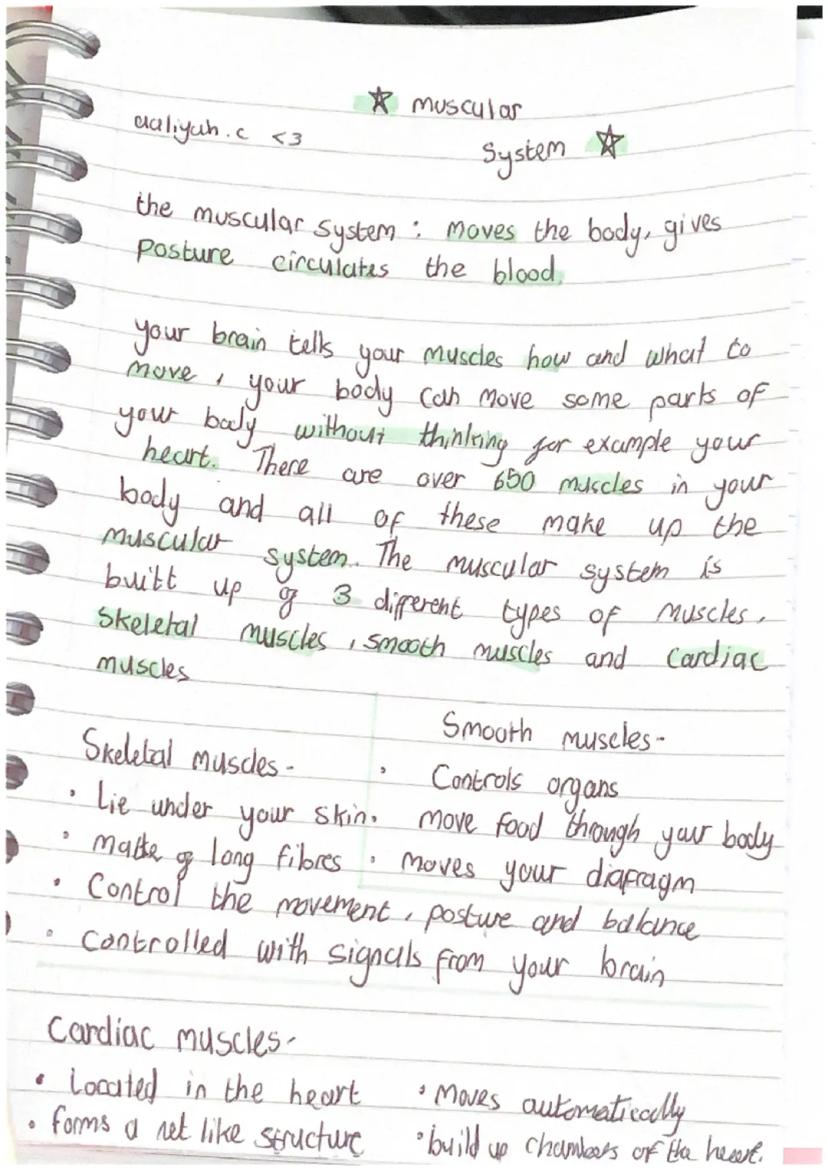 ☆ muscular
aaliyah.c <3
System ☆
the muscular system : moves the body, gives
posture circulates the blood.
your brain tells your muscles how and what to
move , your body can move some parts of
your body without thinking for example your
heart. There are over 650 muscles in your
body and all of these make up the
muscular system. The muscular system is
built up of 3 different types of muscles.
Skeletal muscles , smooth muscles and cardiac
muscles
Skeletal muscles -
• lie under your skin.
• made of long fibres
• Control the movement , posture and balance
• controlled with signals from your brain
Smooth muscles -
• Controls organs
• move food through your body
• moves your diafragm
Cardiac muscles -
• Located in the heart
• forms a net like structure
• moves automatically
• build up chambers of the heart.